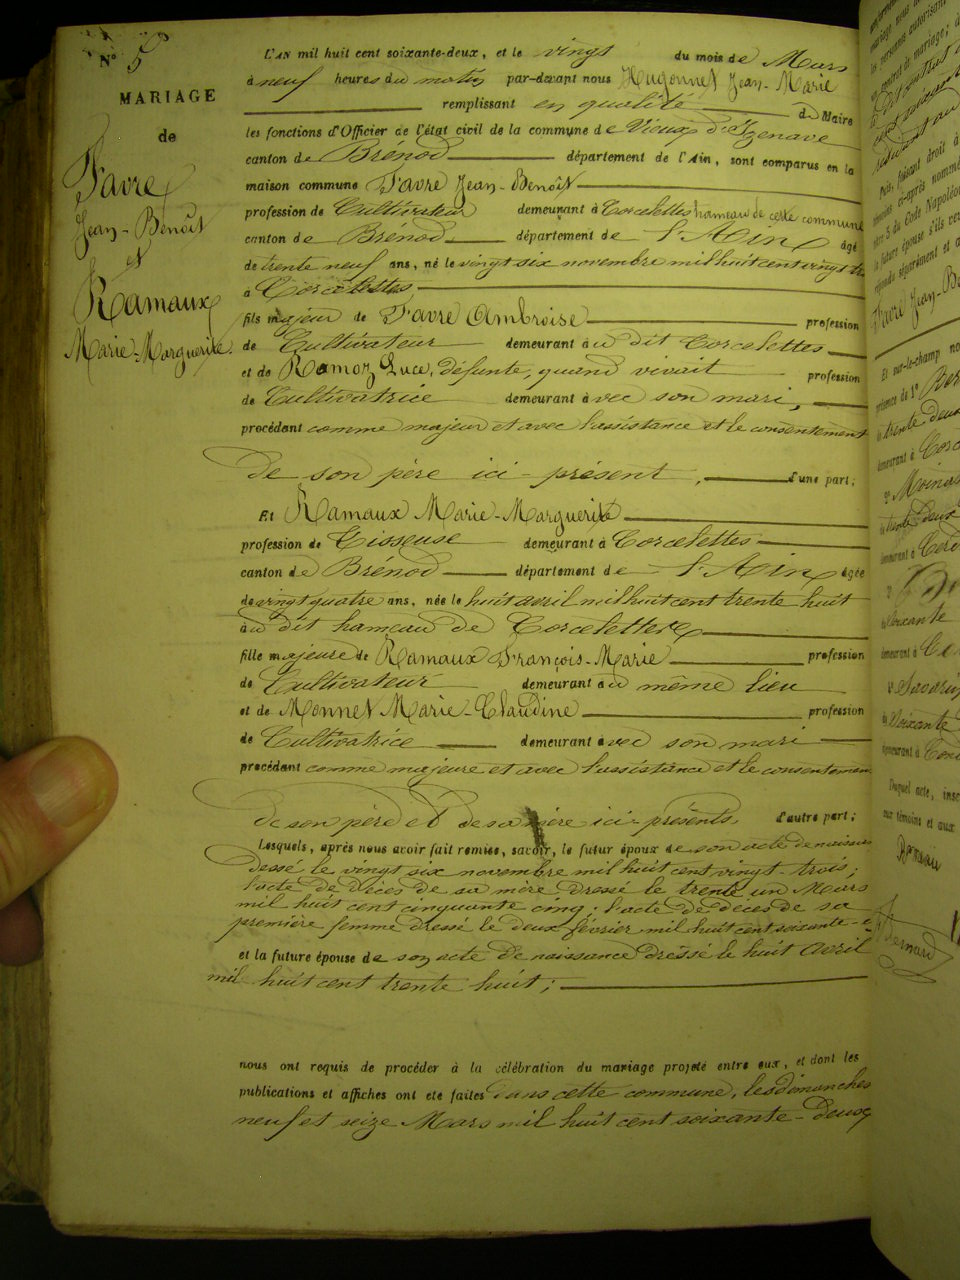 N° 5
MARIAGE
de
Favre
Jean-Benoît
et
Ramaux
Marie-Marguerite.
L'AN mil huit cent soixante-deux, et le vingt du mois de Mars
à neuf heures du matin par-devant nous Hugonnet Jean-Marie
remplissant en qualité de Maire
les fonctions d'Officier de l'état civil de la commune de Vieux d'Izenave
canton de Brénod département de l'Ain, sont comparus en la
maison commune Favre Jean-Benoît
profession de Cultivateur demeurant à Corcelettes hameau de cette commune
canton de Brénod département de l'Ain âgé
de trente neuf ans, né le vingt six novembre mil huit cent vingt
à Corcelettes
fils majeur de Favre Ambroise profession
de Cultivateur demeurant au dit Corcelettes
et de Ramoz Luce, défunte, quand vivait profession
de Cultivatrice demeurant avec son mari,
procédant comme majeur et avec l'assistance et le consentement
de son père ici-présent, d'une part;
Et Ramaux Marie-Marguerite
profession de Tisseuse demeurant à Corcelettes
canton de Brénod département de l'Ain âgée
de vingt quatre ans, née le huit avril mil huit cent trente huit
au dit hameau de Corcelettes
fille majeure de Ramaux François-Marie profession
de Cultivateur demeurant au même lieu
et de Monnet Marie-Claudine profession
de Cultivatrice demeurant avec son mari
procédant comme majeure et avec l'assistance et le consentement
de son père et de sa mère ici-présents, d'autre part;
Lesquels, après nous avoir fait remise, savoir, le futur époux de son acte de naissance
dessé le vingt six novembre mil huit cent vingt-trois;
l'acte de décès de sa mère dressé le trente un Mars
mil huit cent cinquante cinq; l'acte de décès de sa
première femme dressé le deux février mil huit cent soixante-
et la future épouse de son acte de naissance dressé le huit Avril
mil huit cent trente huit;
nous ont requis de procéder à la célébration du mariage projeté entre eux, et dont les
publications et affiches ont été faites dans cette commune, les dimanches
neuf et seize Mars mil huit cent soixante-deux